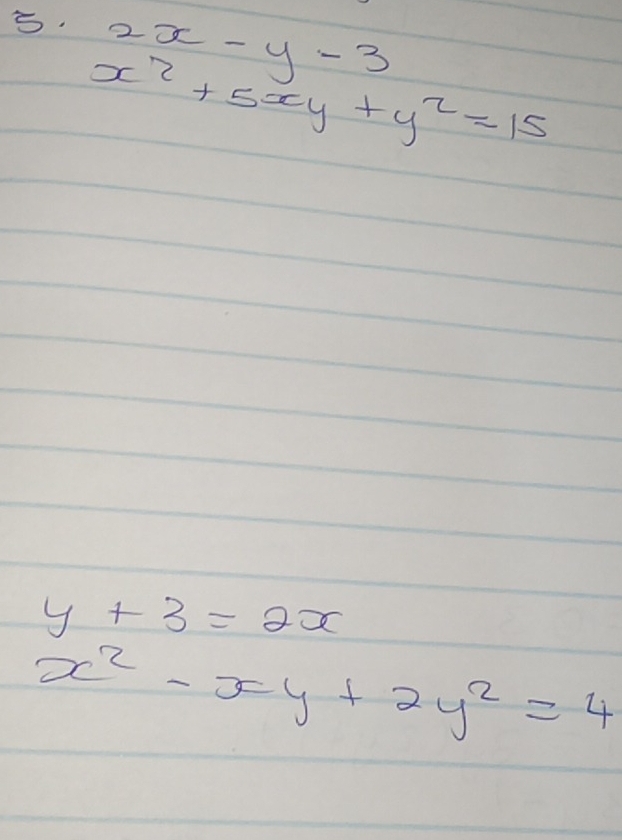 5. 2x - y - 3
x² + 5xy + y² = 15
y + 3 = 2x
x² - xy + 2y² = 4